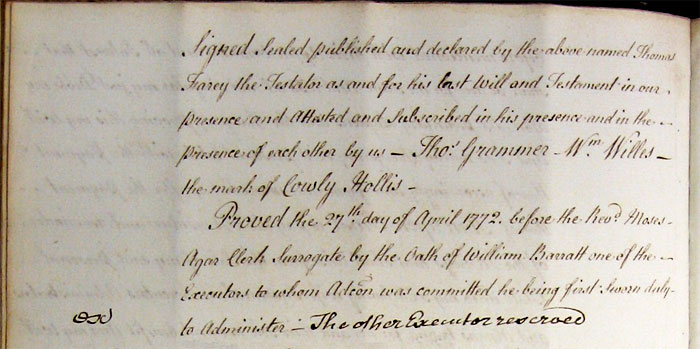 Signed Sealed published and declared by the above named Thomas
Farey the Testator as and for his last Will and Testament in our
presence and Attested and Subscribed in his presence and in the
presence of each other by us – Thos. Grammer – Wm. Willes –
the mark of Cowly Hollis –
Proved the 27th. day of April 1772. before the Revd. Moses
Agar Clerk Surrogate by the Oath of William Barratt one of the
Executors to whom Adcon was committed he being first Sworn duly
to Administer – The other Executor reserved